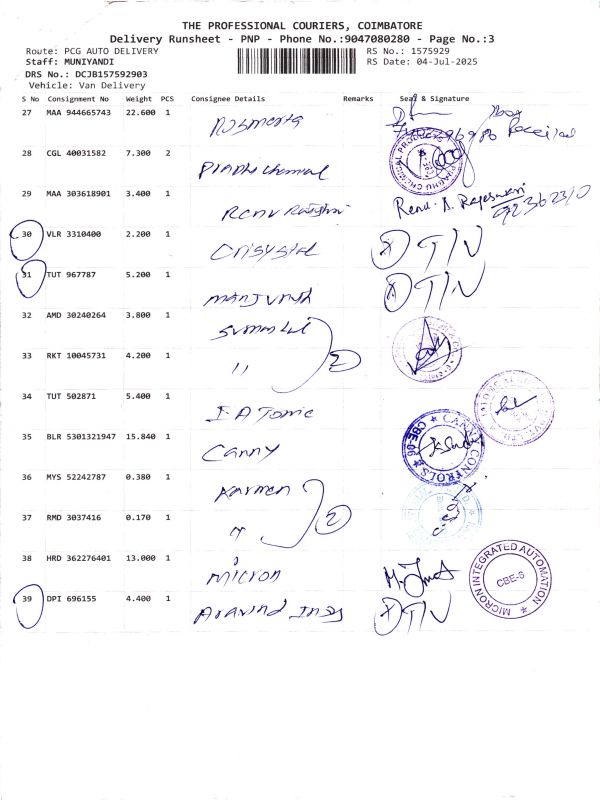 THE PROFESSIONAL COURIERS, COIMBATORE
Delivery Runsheet - PNP - Phone No.:9047080280 - Page No.:3
Route: PCG AUTO DELIVERY RS No.: 1575929
Staff: MUNIYANDI RS Date: 04-Jul-2025
DRS No.: DCJB157592903
Vehicle: Van Delivery
S No Consignment No Weight PCS Consignee Details Remarks Seal & Signature
27 MAA 944665743 22.600 1
Received
28 CGL 40031582 7.300 2 Prabhu chemical
29 MAA 303618901 3.400 1 Renu
Renu. D. Rajeswari
30 VLR 3310400 2.200 1 Crisystal
31 TUT 967787 5.200 1 manjunath
32 AMD 30240264 3.800 1
33 RKT 10045731 4.200 1 " 2
34 TUT 502871 5.400 1 I A Tomic
35 BLR 5301321947 15.840 1 Canny
CANNY CONTROLS CBE-06
36 MYS 52242787 0.380 1 Karmen
37 RMD 3037416 0.170 1 " 2
38 HRD 362276401 13.000 1 micron
MICRON INTEGRATED AUTOMATION CBE-6
39 DPI 696155 4.400 1 Aravind Indy